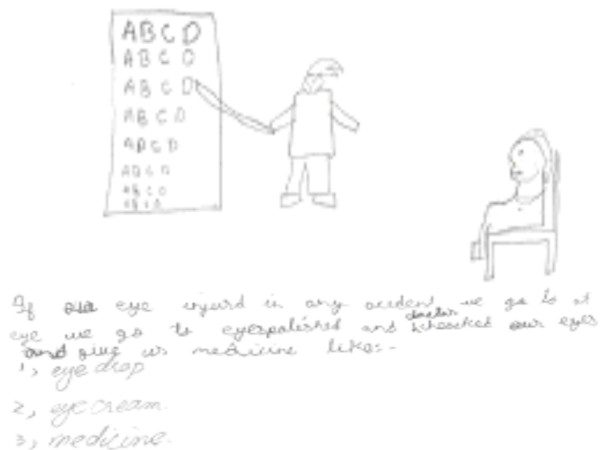 A B C D
A B C D
A B C D
A B C D
A B C D
A B C D
A B C D
A B C D
If our eye injurd in any accident we go to at
eye we go to eyespolished and doctor kheacked our eyes
and give us medicine like:-
1, eye drop
2, eye cream.
3, medicine.